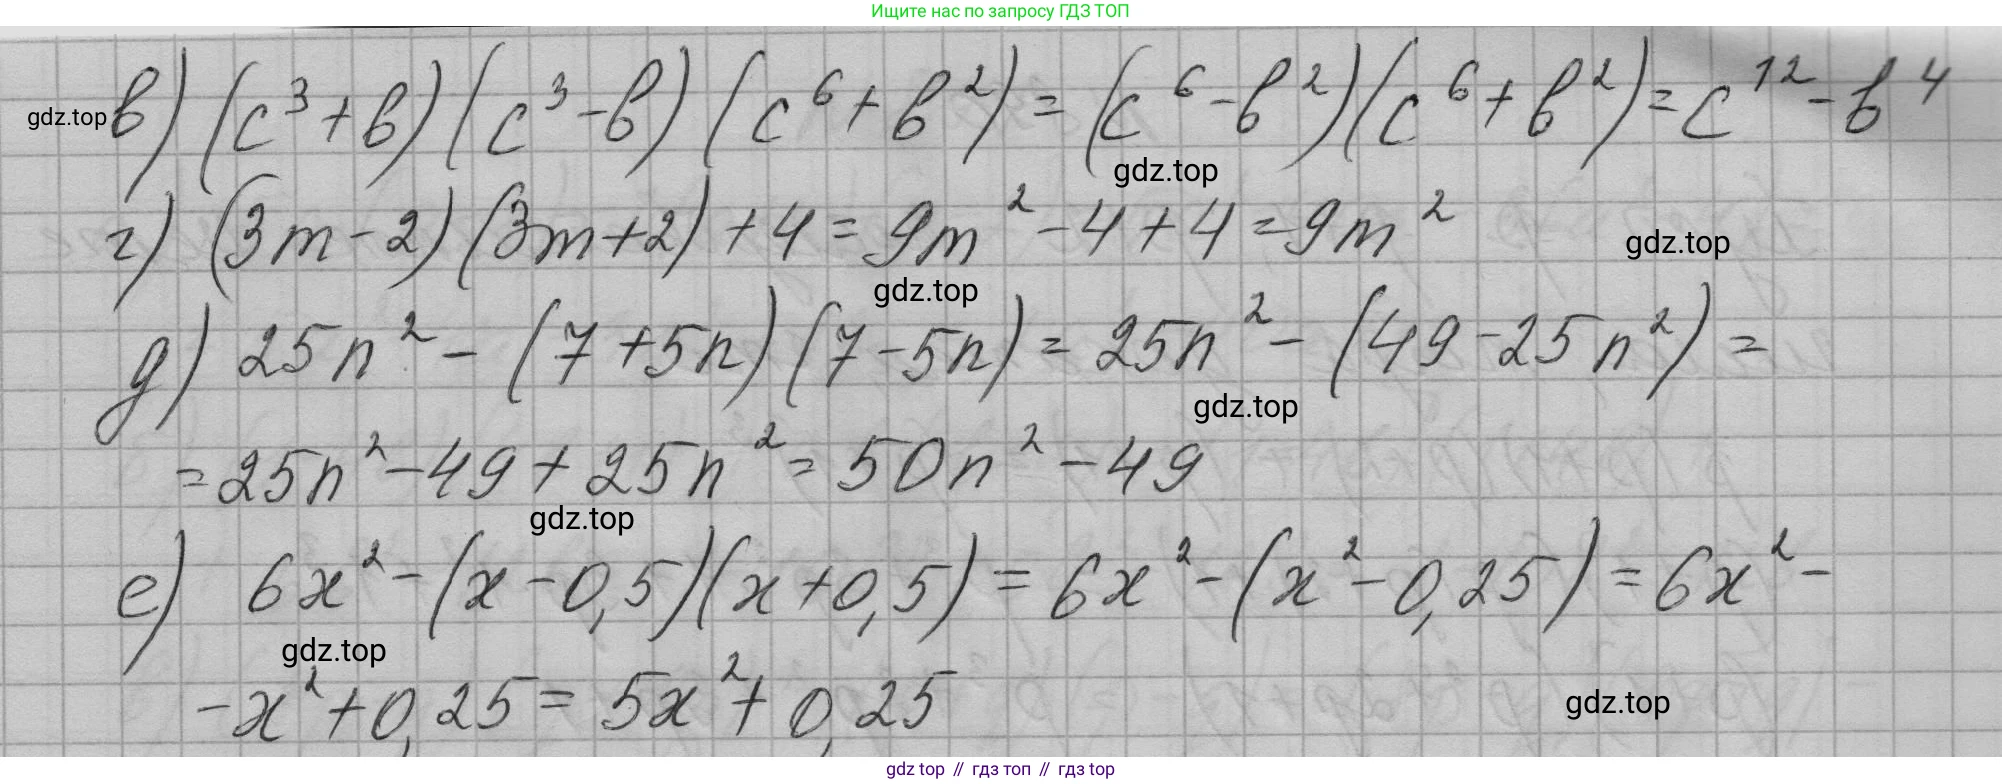 Ищите нас по запросу ГДЗ ТОП
gdz.top в) (c³+в)(c³-в)(c⁶+в²)=(c⁶-в²)(c⁶+в²)=c¹²-в⁴
gdz.top
г) (3m-2)(3m+2)+4=9m²-4+4=9m²
gdz.top
gdz.top
д) 25n²-(7+5n)(7-5n)=25n²-(49-25n²)=
gdz.top
=25n²-49+25n²=50n²-49
gdz.top
е) 6x²-(x-0,5)(x+0,5)=6x²-(x²-0,25)=6x²-
gdz.top
-x²+0,25=5x²+0,25
gdz.top
gdz top // гдз топ // gdz top